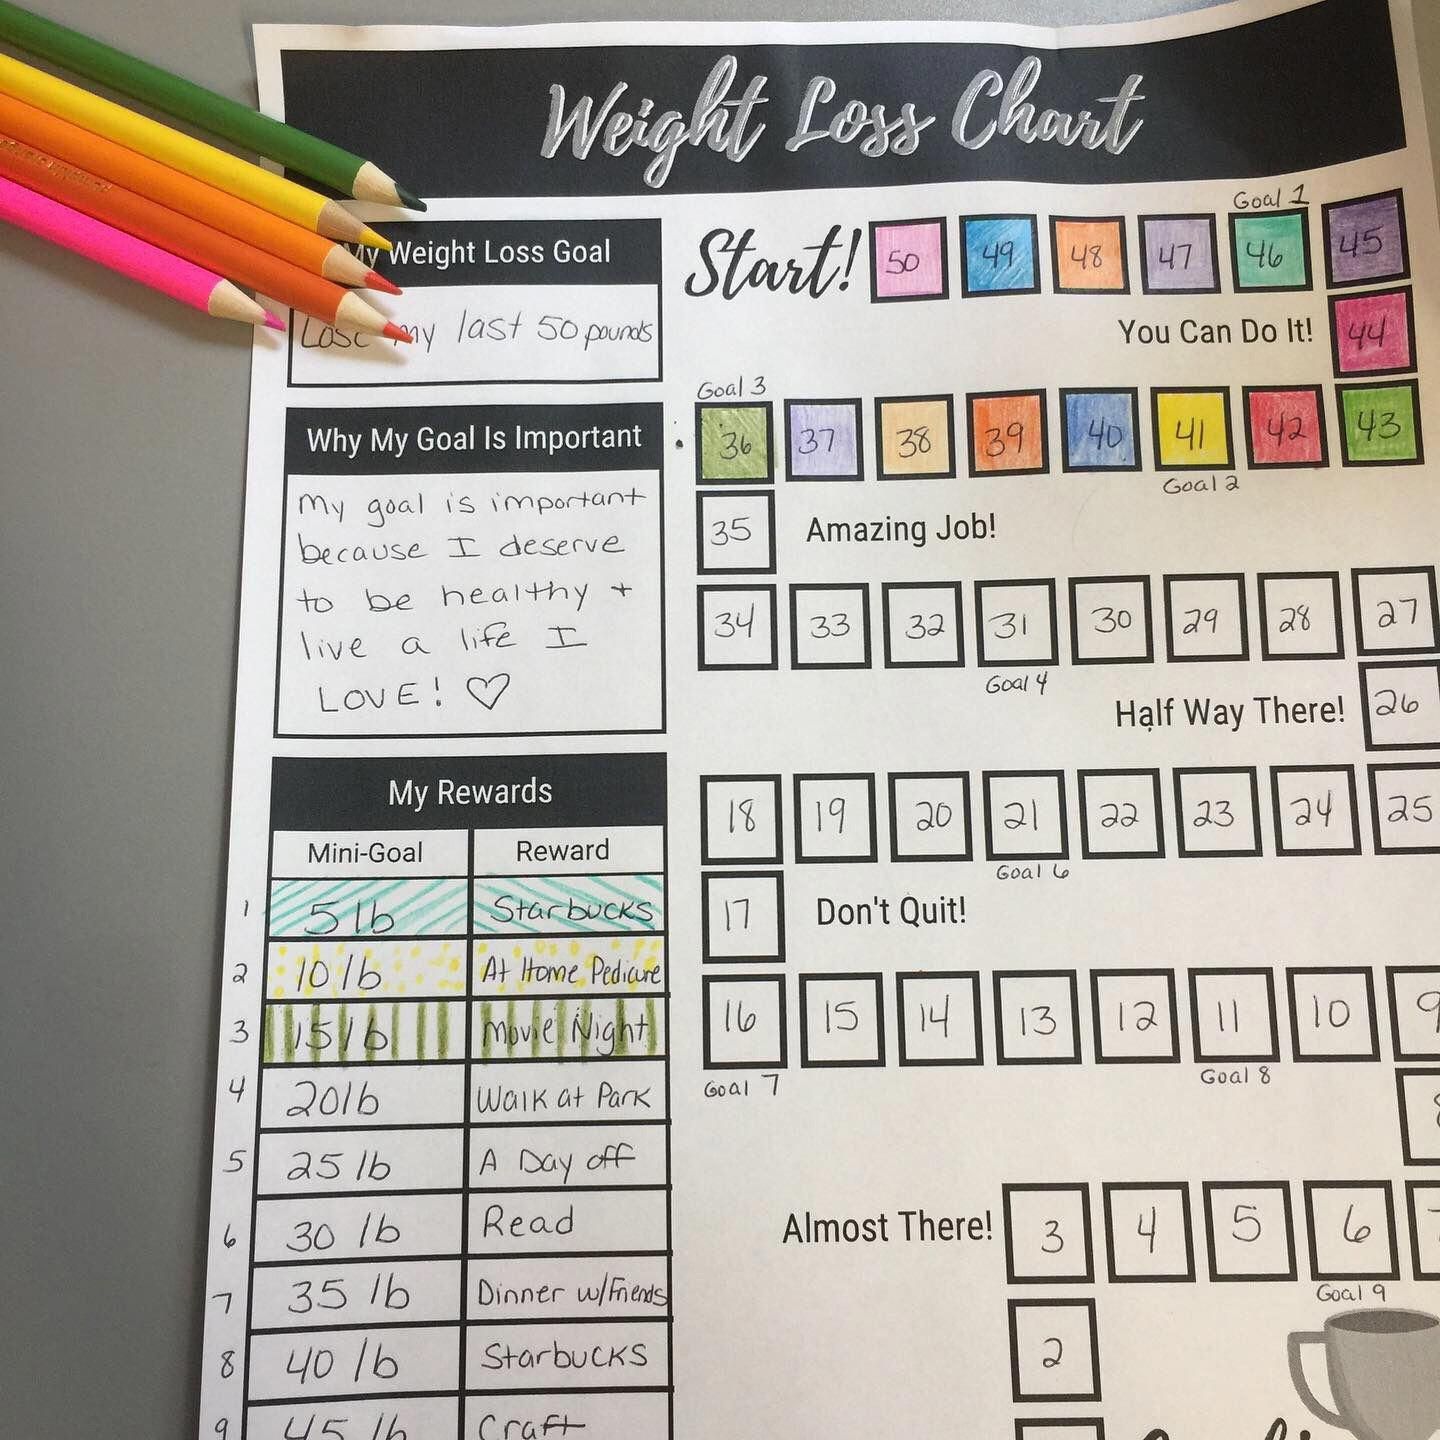 Weight Loss Chart
My Weight Loss Goal
Lose my last 50 pounds
Why My Goal Is Important
My goal is important
because I deserve
to be healthy +
live a life I
LOVE! ♡
My Rewards
Mini-Goal Reward
1 5 lb Starbucks
2 10 lb At Home Pedicure
3 15 lb Movie Night
4 20 lb Walk at Park
5 25 lb A Day off
6 30 lb Read
7 35 lb Dinner w/Friends
8 40 lb Starbucks
9 45 lb Craft
Goal 1
Start! 50 49 48 47 46 45
You Can Do It! 44
Goal 3
36 37 38 39 40 41 42 43
Goal 2
35 Amazing Job!
34 33 32 31 30 29 28 27
Goal 4
Half Way There! 26
18 19 20 21 22 23 24 25
Goal 6
17 Don't Quit!
16 15 14 13 12 11 10 9
Goal 7 Goal 8
8
Almost There! 3 4 5 6
Goal 9
2